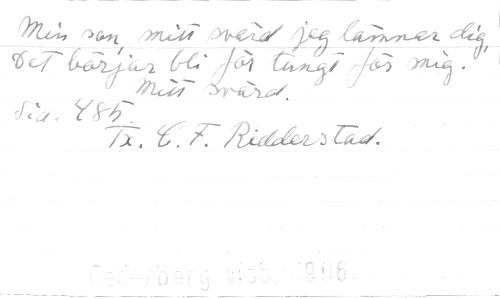 Min son, mitt svärd jag lämnar dig,
Det börjar bli för tungt för mig.
Mitt svärd.
Sid. 485.
Tx. C. F. Ridderstad.
Cederberg 1908.